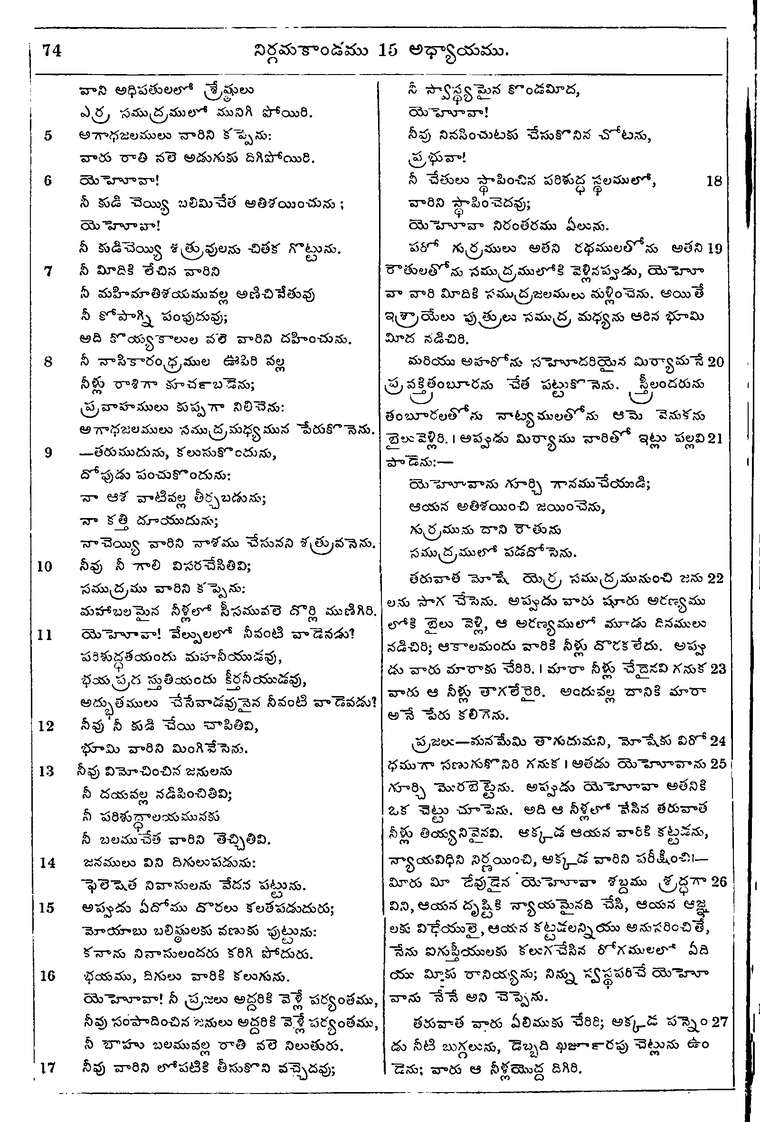 74
నిర్గమకాండము 15 అధ్యాయము.
వాని అధిపతులలో శ్రేష్ఠులు
ఎర్ర సముద్రములో మునిగి పోయిరి.
5 అగాధజలములు వారిని కప్పెను:
వారు రాతి వలె అడుగుకు దిగిపోయిరి.
6 యెహోవా!
నీ కుడి చెయ్యి బలిమిచేత అతిశయించును;
యెహోవా!
నీ కుడిచెయ్యి శత్రువులను చితక గొట్టును.
7 నీ మీదికి లేచిన వారిని
నీ మహిమాతిశయమువల్ల అణిచివేతువు
నీ కోపాగ్ని పంపుదువు;
అది కొయ్యకాలుల వలె వారిని దహించును.
8 నీ నాసికారంధ్రముల ఊపిరి వల్ల
నీళ్లు రాశిగా కూచఁబడెను;
ప్రవాహములు కుప్పగా నిలిచెను:
అగాధజలములు సముద్రమధ్యమున పేరుకొనెను.
9 —తరుముదును, కలుసుకొందును,
దోపుడు పంచుకొందును:
నా ఆశ వాటివల్ల తీర్చబడును;
నా కత్తి దూయుదును;
నాచెయ్యి వారిని నాశము చేసునని శత్రువనెను.
10 నీవు నీ గాలి విసరచేసితివి;
సముద్రము వారిని కప్పెను:
మహాబలమైన నీళ్లలో సీసమువలె దొర్లి మునిగిరి.
11 యెహోవా! వేల్పులలో నీవంటి వాడెవడు?
పరిశుద్ధతయందు మహనీయుడవు,
భయప్రద స్తుతియందు కీర్తనీయుడవు,
అద్భుతములు చేసేవాడవునైన నీవంటి వాడెవడు?
12 నీవు నీ కుడి చేయి చాపితివి,
భూమి వారిని మింగివేసెను.
13 నీవు విమోచించిన జనులను
నీ దయవల్ల నడిపించితివి;
నీ పరిశుద్ధాలయమునకు
నీ బలముచేత వారిని తెచ్చితివి.
14 జనములు విని దిగులుపడును:
ఫెలెషెత నివాసులను వేదన పట్టును.
15 అప్పుడు ఏదోము దొరలు కలతపడుదురు;
మోయాబు బలిష్ఠులకు వణుకు పుట్టును:
కనాను నివాసులందరు కరిగి పోదురు.
16 భయము, దిగులు వారికి కలుగును.
యెహోవా! నీ ప్రజలు అద్దరికి వెళ్లే పర్యంతము,
నీవు సంపాదించిన జనులు అద్దరికి వెళ్లే పర్యంతము,
నీ బాహు బలమువల్ల రాతి వలె నిలుతురు.
17 నీవు వారిని లోపటికి తీసుకొని వచ్చెదవు;
నీ స్వాస్థ్యమైన కొండమీద,
యెహోవా!
నీవు నివసించుటకు చేసుకొనిన చోటను,
ప్రభువా!
నీ చేతులు స్థాపించిన పరిశుద్ధ స్థలములో, 18
వారిని స్థాపించెదవు;
యెహోవా నిరంతరము ఏలును.
పరో గుర్రములు అతని రథములతోను అతని 19
రౌతులతోను సముద్రములోకి వెళ్లినప్పుడు, యెహో
వా వారి మీదికి సముద్రజలములు మళ్లించెను. అయితే
ఇశ్రాయేలు పుత్రులు సముద్ర మధ్యను ఆరిన భూమి
మీద నడిచిరి.
మరియు అహరోను సహోదరియైన మిర్యామనే 20
ప్రవక్త్రితంబూరను చేత పట్టుకొనెను. స్త్రీలందరును
తంబూరలతోను నాట్యములతోను ఆమె వెనుకను
బైలువెళ్లిరి. । అప్పుడు మిర్యాము వారితో ఇట్లు పల్లవి 21
పాడెను:—
యెహోవాను గూర్చి గానముచేయుడి;
ఆయన అతిశయించి జయించెను,
గుర్రమును దాని రౌతును
సముద్రములో పడదోసెను.
తరువాత మోషే యెర్ర సముద్రమునుంచి జను 22
లను సాగ చేసెను. అప్పుడు వారు షూరు అరణ్యము
లోకి బైలు వెళ్లి, ఆ అరణ్యములో మూడు దినములు
నడిచిరి; ఆకాలమందు వారికి నీళ్లు దొరకలేదు. అప్పు
డు వారు మారాకు చేరిరి. । మారా నీళ్లు చేదైనవి గనుక 23
వారు ఆ నీళ్లు తాగలేరైరి. అందువల్ల దానికి మారా
అనే పేరు కలిగెను.
ప్రజలు—మనమేమి తాగుదుమని, మోషేకు విరో 24
ధముగా సణుగుకొనిరి గనుక । అతడు యెహోవాను 25
గూర్చి మొరబెట్టెను. అప్పుడు యెహోవా అతనికి
ఒక చెట్టు చూపెను. అది ఆ నీళ్లలో వేసిన తరువాత
నీళ్లు తియ్యనివైనవి. ఆక్కడ ఆయన వారికి కట్టడను,
న్యాయవిధిని నిర్ణయించి, అక్కడ వారిని పరీక్షించి।—
మీరు మీ దేవుడైన యెహోవా శబ్దము శ్రద్ధగా 26
విని, ఆయన దృష్టికి న్యాయమైనది చేసి, ఆయన ఆజ్ఞ
లకు విధేయులై, ఆయన కట్టడలన్నియు అనుసరించితే,
నేను ఐగుప్తీయులకు కలుగచేసిన రోగములలో ఏది
యు మీకు రానియ్యను; నిన్ను స్వస్థపరిచే యెహో
వాను నేనే అని చెప్పెను.
తరువాత వారు ఏలిముకు చేరిరి; అక్కడ పన్నెం 27
డు నీటి బుగ్గలును, డెబ్బది ఖర్జూరపు చెట్లును ఉం
డెను; వారు ఆ నీళ్లయొద్ద దిగిరి.